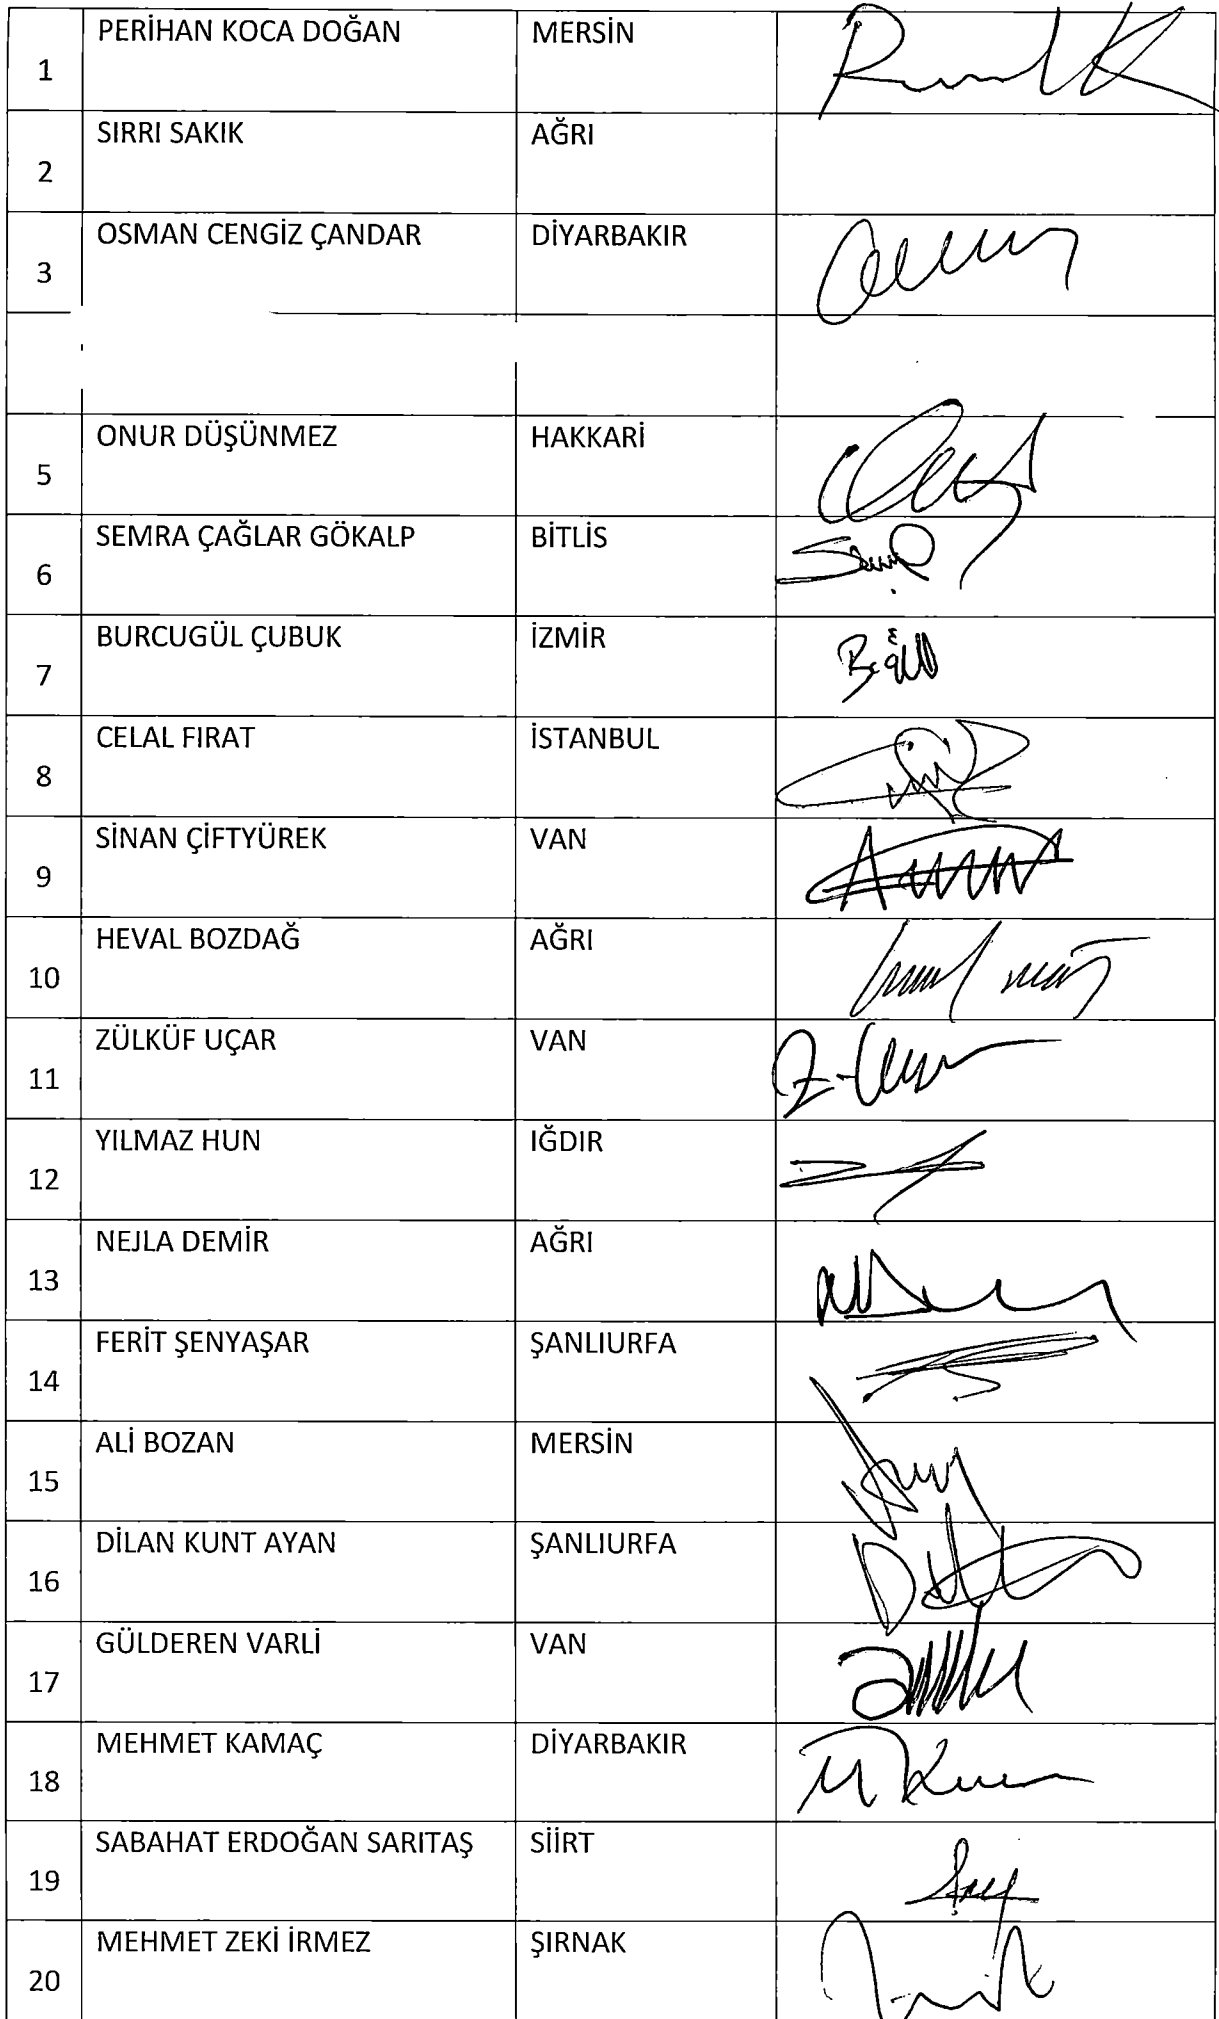 1 PERİHAN KOCA DOĞAN MERSİN
2 SIRRI SAKIK AĞRI
3 OSMAN CENGİZ ÇANDAR DİYARBAKIR
5 ONUR DÜŞÜNMEZ HAKKARİ
6 SEMRA ÇAĞLAR GÖKALP BİTLİS
7 BURCUGÜL ÇUBUK İZMİR
8 CELAL FIRAT İSTANBUL
9 SİNAN ÇİFTYÜREK VAN
10 HEVAL BOZDAĞ AĞRI
11 ZÜLKÜF UÇAR VAN
12 YILMAZ HUN IĞDIR
13 NEJLA DEMİR AĞRI
14 FERİT ŞENYAŞAR ŞANLIURFA
15 ALİ BOZAN MERSİN
16 DİLAN KUNT AYAN ŞANLIURFA
17 GÜLDEREN VARLİ VAN
18 MEHMET KAMAÇ DİYARBAKIR
19 SABAHAT ERDOĞAN SARITAŞ SİİRT
20 MEHMET ZEKİ İRMEZ ŞIRNAK